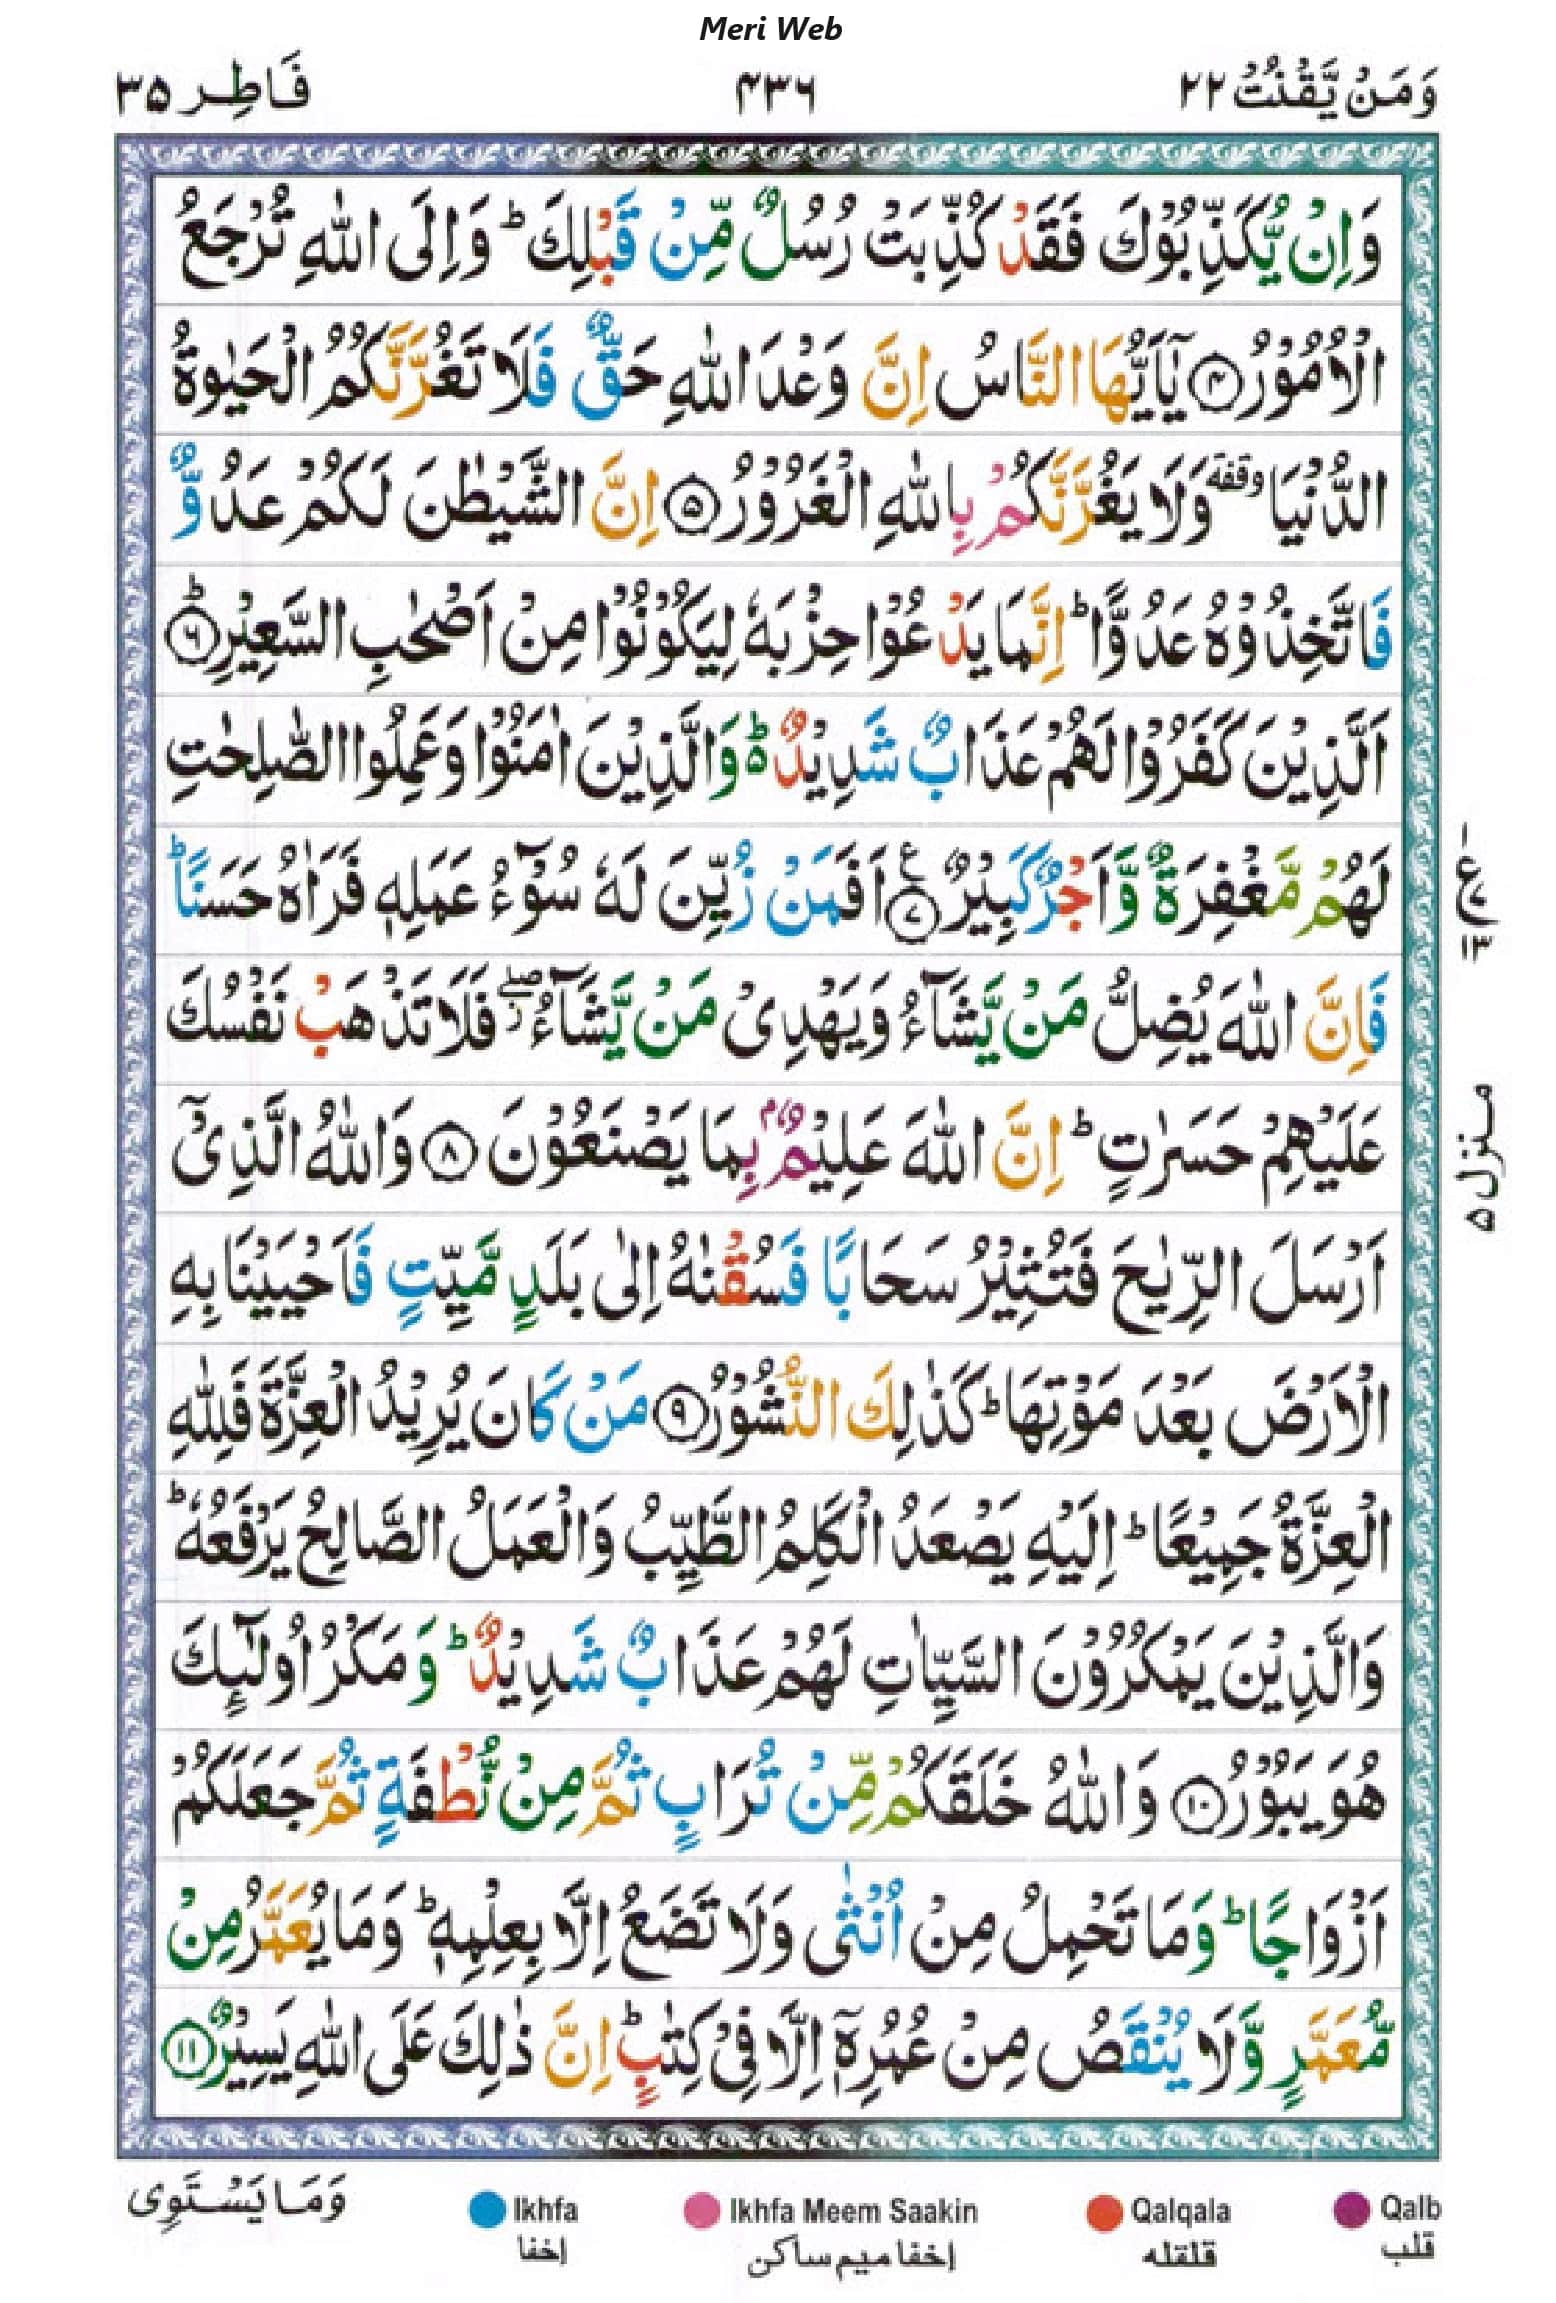 Meri Web
وَمَنْ يَّقْنُتْ ٢٢
٤٣٦
فَاطِر ٣٥
وَاِنْ يُّكَذِّبُوْكَ فَقَدْ كُذِّبَتْ رُسُلٌ مِّنْ قَبْلِكَ ؕ وَاِلَى اللّٰهِ تُرْجَعُ
الْاُمُوْرُ ۝۴ يٰۤاَيُّهَا النَّاسُ اِنَّ وَعْدَ اللّٰهِ حَقٌّ فَلَا تَغُرَّنَّكُمُ الْحَيٰوةُ
الدُّنْيَا ۥ وقفة وَلَا يَغُرَّنَّكُمْ بِاللّٰهِ الْغَرُوْرُ ۝۵ اِنَّ الشَّيْطٰنَ لَكُمْ عَدُوٌّ
فَاتَّخِذُوْهُ عَدُوًّا ؕ اِنَّمَا يَدْعُوْا حِزْبَهٗ لِيَكُوْنُوْا مِنْ اَصْحٰبِ السَّعِيْرِ ؕ ۝۶
اَلَّذِيْنَ كَفَرُوْا لَهُمْ عَذَابٌ شَدِيْدٌ ؕ۬ وَالَّذِيْنَ اٰمَنُوْا وَعَمِلُوا الصّٰلِحٰتِ
لَهُمْ مَّغْفِرَةٌ وَّاَجْرٌ كَبِيْرٌ ۝۷ ع اَفَمَنْ زُيِّنَ لَهٗ سُوْٓءُ عَمَلِهٖ فَرَاٰهُ حَسَنًا ؕ
فَاِنَّ اللّٰهَ يُضِلُّ مَنْ يَّشَآءُ وَيَهْدِىْ مَنْ يَّشَآءُ ۖ فَلَا تَذْهَبْ نَفْسُكَ
عَلَيْهِمْ حَسَرٰتٍ ؕ اِنَّ اللّٰهَ عَلِيْمٌۢ بِمَا يَصْنَعُوْنَ ۝۸ وَاللّٰهُ الَّذِىْۤ
اَرْسَلَ الرِّيٰحَ فَتُثِيْرُ سَحَابًا فَسُقْنٰهُ اِلٰى بَلَدٍ مَّيِّتٍ فَاَحْيَيْنَا بِهِ
الْاَرْضَ بَعْدَ مَوْتِهَا ؕ كَذٰلِكَ النُّشُوْرُ ۝۹ مَنْ كَانَ يُرِيْدُ الْعِزَّةَ فَلِلّٰهِ
الْعِزَّةُ جَمِيْعًا ؕ اِلَيْهِ يَصْعَدُ الْكَلِمُ الطَّيِّبُ وَالْعَمَلُ الصَّالِحُ يَرْفَعُهٗ ؕ
وَالَّذِيْنَ يَمْكُرُوْنَ السَّيِّاٰتِ لَهُمْ عَذَابٌ شَدِيْدٌ ؕ وَمَكْرُ اُولٰٓئِكَ
هُوَ يَبُوْرُ ۝۱۰ وَاللّٰهُ خَلَقَكُمْ مِّنْ تُرَابٍ ثُمَّ مِنْ نُّطْفَةٍ ثُمَّ جَعَلَكُمْ
اَزْوَاجًا ؕ وَمَا تَحْمِلُ مِنْ اُنْثٰى وَلَا تَضَعُ اِلَّا بِعِلْمِهٖ ؕ وَمَا يُعَمَّرُ مِنْ
مُّعَمَّرٍ وَّلَا يُنْقَصُ مِنْ عُمُرِهٖۤ اِلَّا فِىْ كِتٰبٍ ؕ اِنَّ ذٰلِكَ عَلَى اللّٰهِ يَسِيْرٌ ۝۱۱
ع
۱۳
منزل ۵
وَمَا يَسْتَوِى
Ikhfa
إخفا
Ikhfa Meem Saakin
إخفا ميم ساكن
Qalqala
قلقله
Qalb
قلب